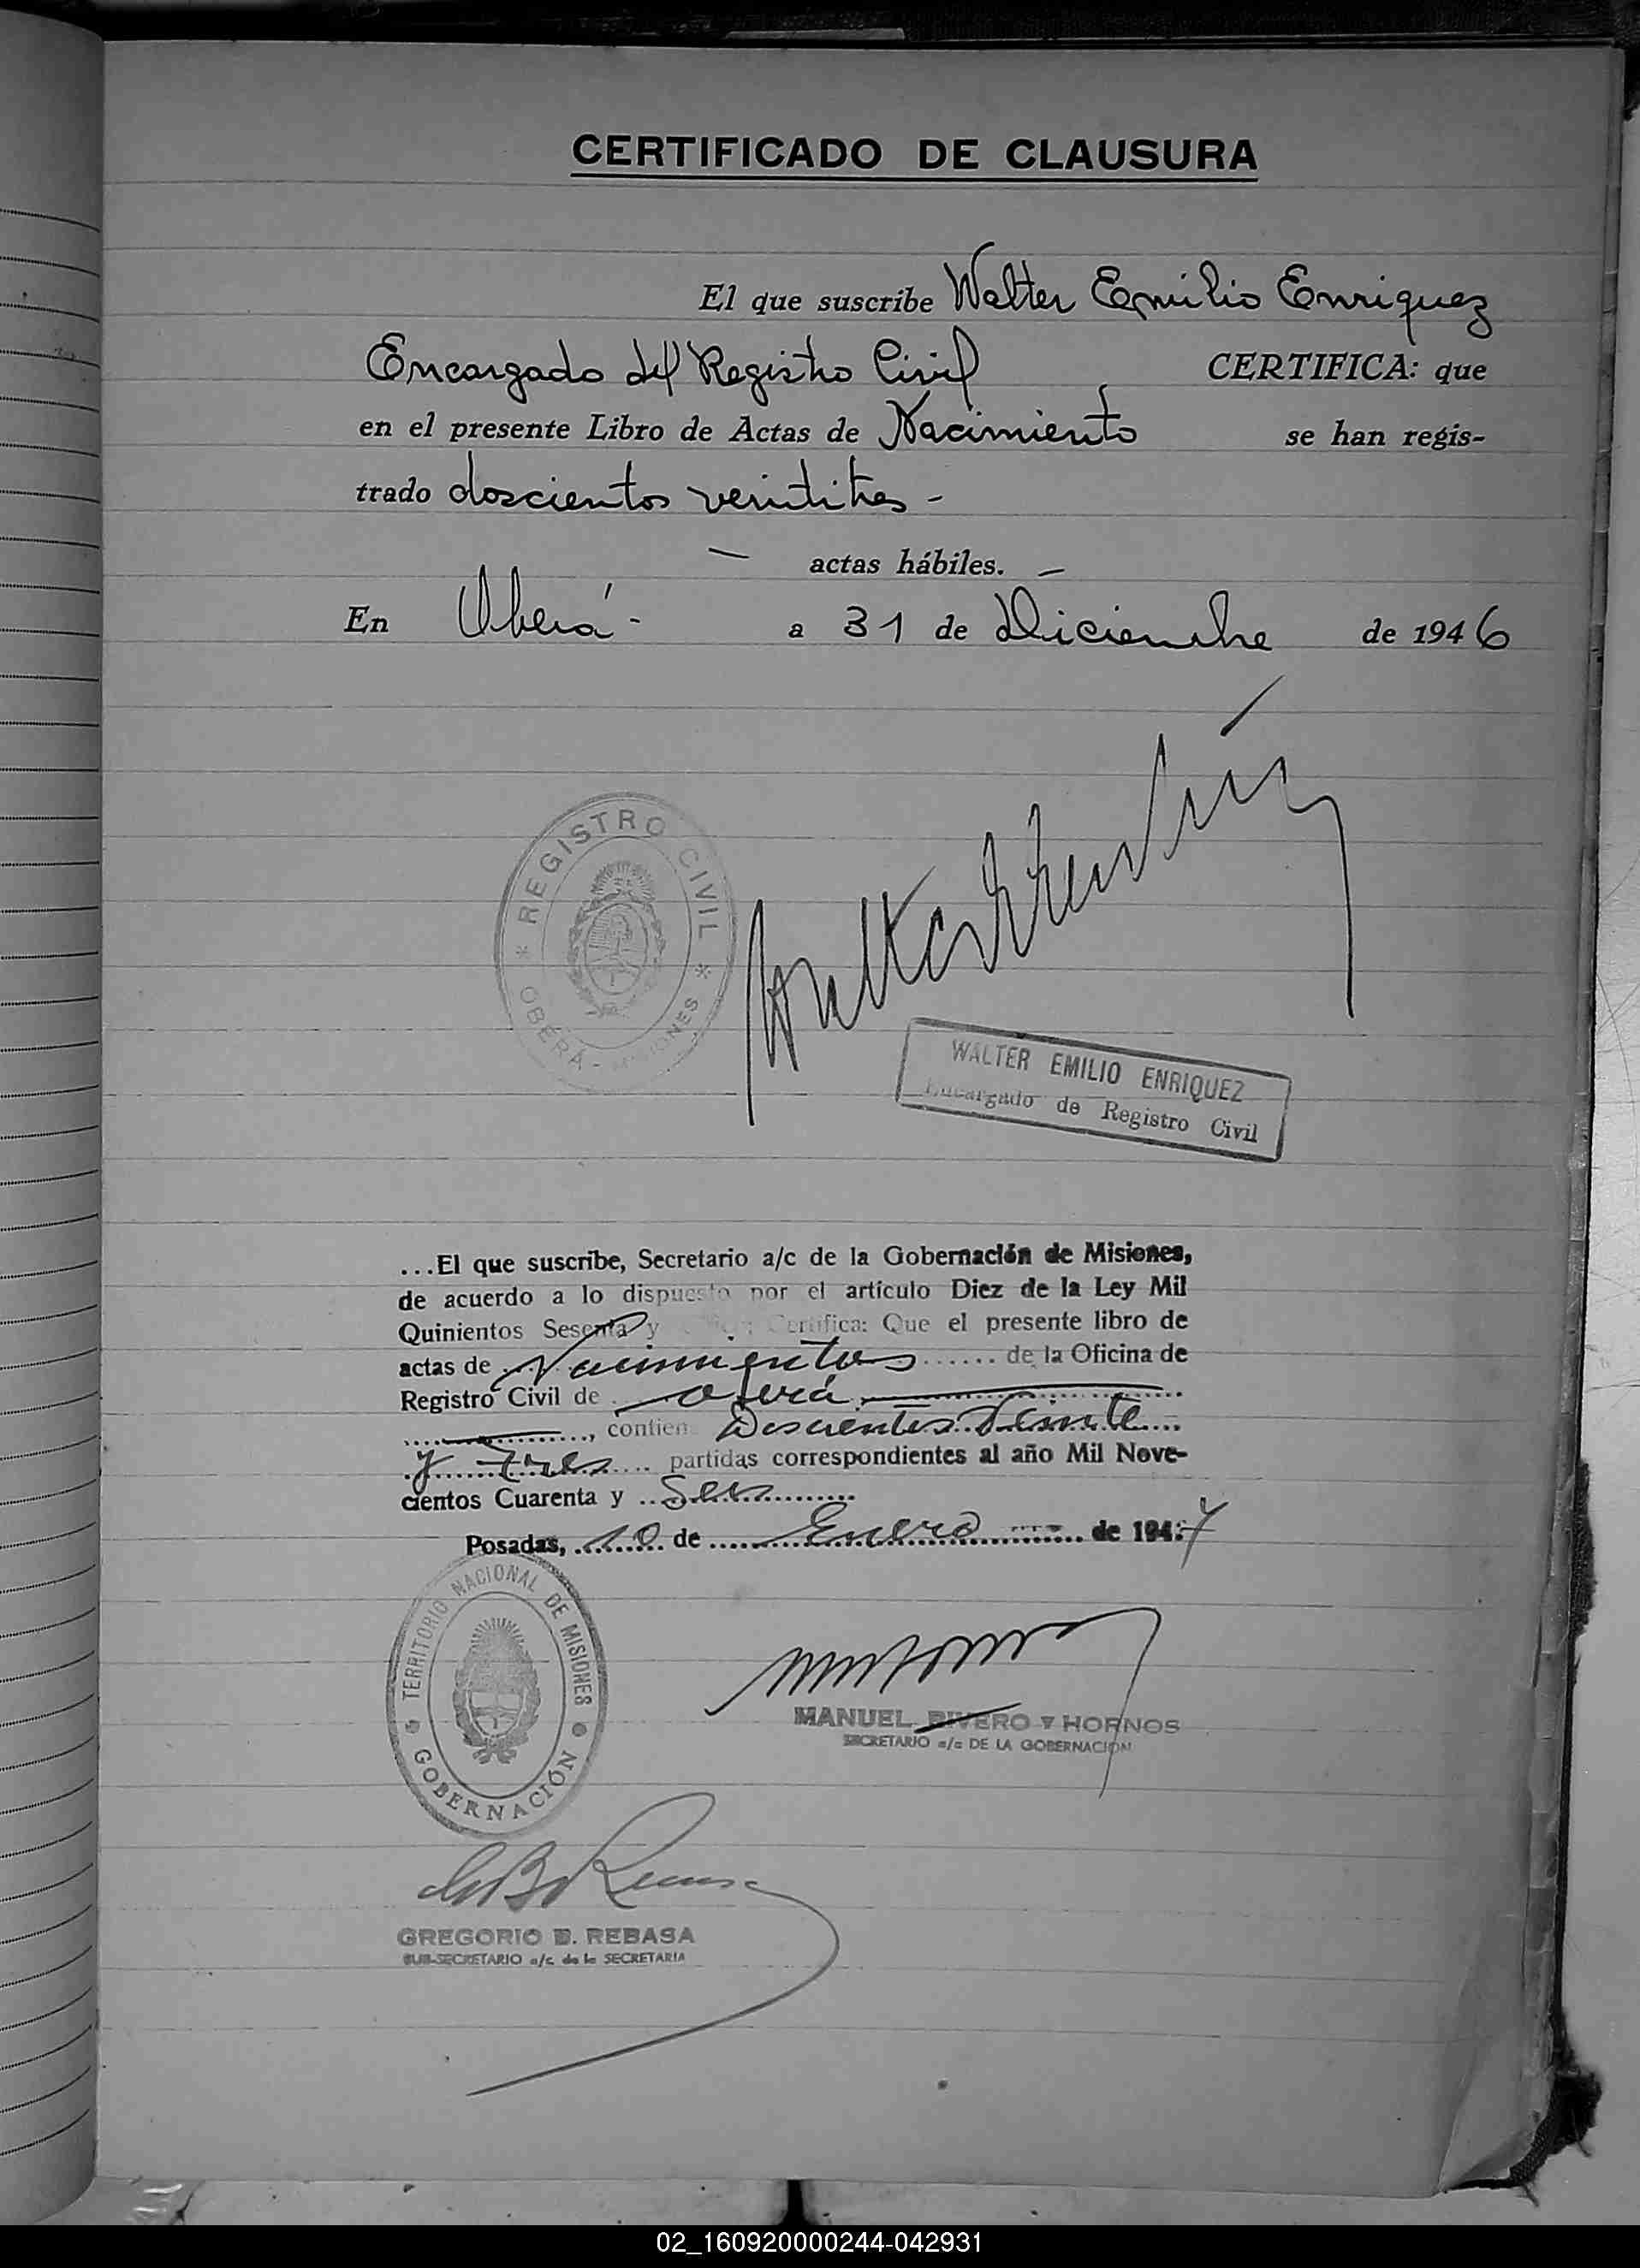 CERTIFICADO DE CLAUSURA
El que suscribe Walter Emilio Enriquez
Encargado del Registro Civil, CERTIFICA: que
en el presente Libro de Actas de Nacimiento se han regis-
trado doscientos veintitres -
— actas hábiles. —
En Oberá - a 31 de Diciembre de 1946
REGISTRO CIVIL
OBERÁ - MISIONES
WALTER EMILIO ENRIQUEZ
Encargado de Registro Civil
...El que suscribe, Secretario a/c de la Gobernación de Misiones,
de acuerdo a lo dispuesto por el artículo Diez de la Ley Mil
Quinientos Sesenta y Certifica: Que el presente libro de
actas de Nacimientos ...... de la Oficina de
Registro Civil de Oberá
, contien Doscientos Veinte
y tres partidas correspondientes al año Mil Nove-
cientos Cuarenta y Seis
Posadas, 10 de Enero de 1947
TERRITORIO NACIONAL DE MISIONES
GOBERNACIÓN
MANUEL RIVERO Y HORNOS
SECRETARIO a/c DE LA GOBERNACION
GREGORIO B. REBASA
SUB-SECRETARIO a/c. de la SECRETARIA
02_160920000244-042931